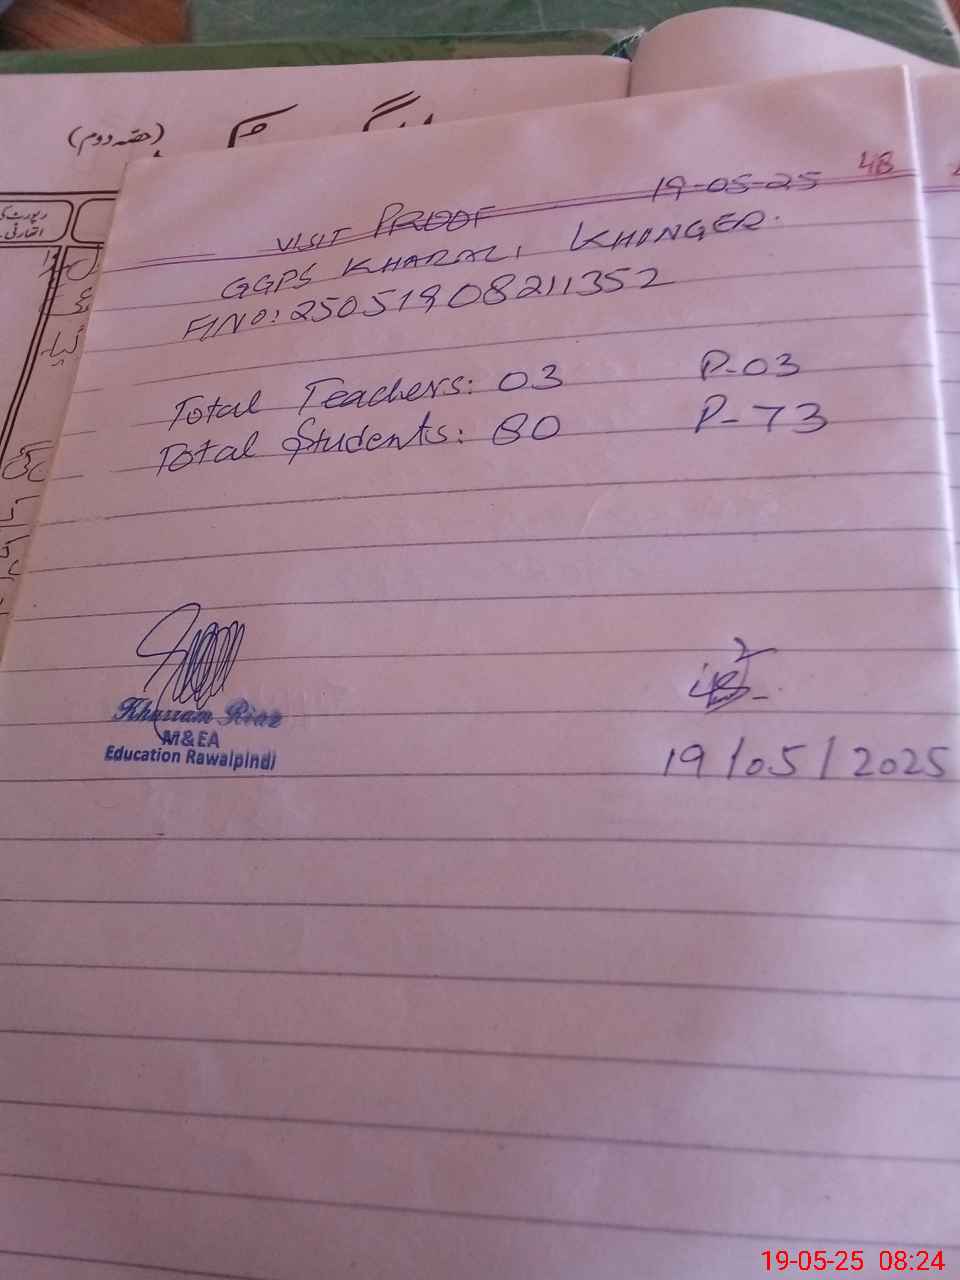 (حصہ دوم)
رپورٹ
اتھارٹی
48
19-05-25
VISIT PROOF
GGPS KHARAZI KHINGER.
F/NO: 25051908211352
Total Teachers: 03 P-03
Total Students: 80 P-73
Khurram Riaz
M&EA
Education Rawalpindi
19/05/2025
19-05-25 08:24